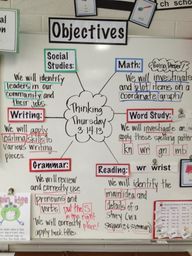 ch school
Objectives
Social
Studies:
We will identify
leaders in our
community and
their jobs.
Math:
We will investigate
and plot items on a
coordinate graph!
Thinking
Thursday
3.14.13
Writing:
We will apply
editing skills to
various writing
pieces.
Word Study:
We will investigate
spelling patterns
kn wr gn mb
wr wrist
Grammar:
We will review
and correctly use
pronouns and
verbs put the 's
in the right place!
We will correctly
apply
Reading:
We will identify the
main idea and
details of a
story (in a
sequence summary).